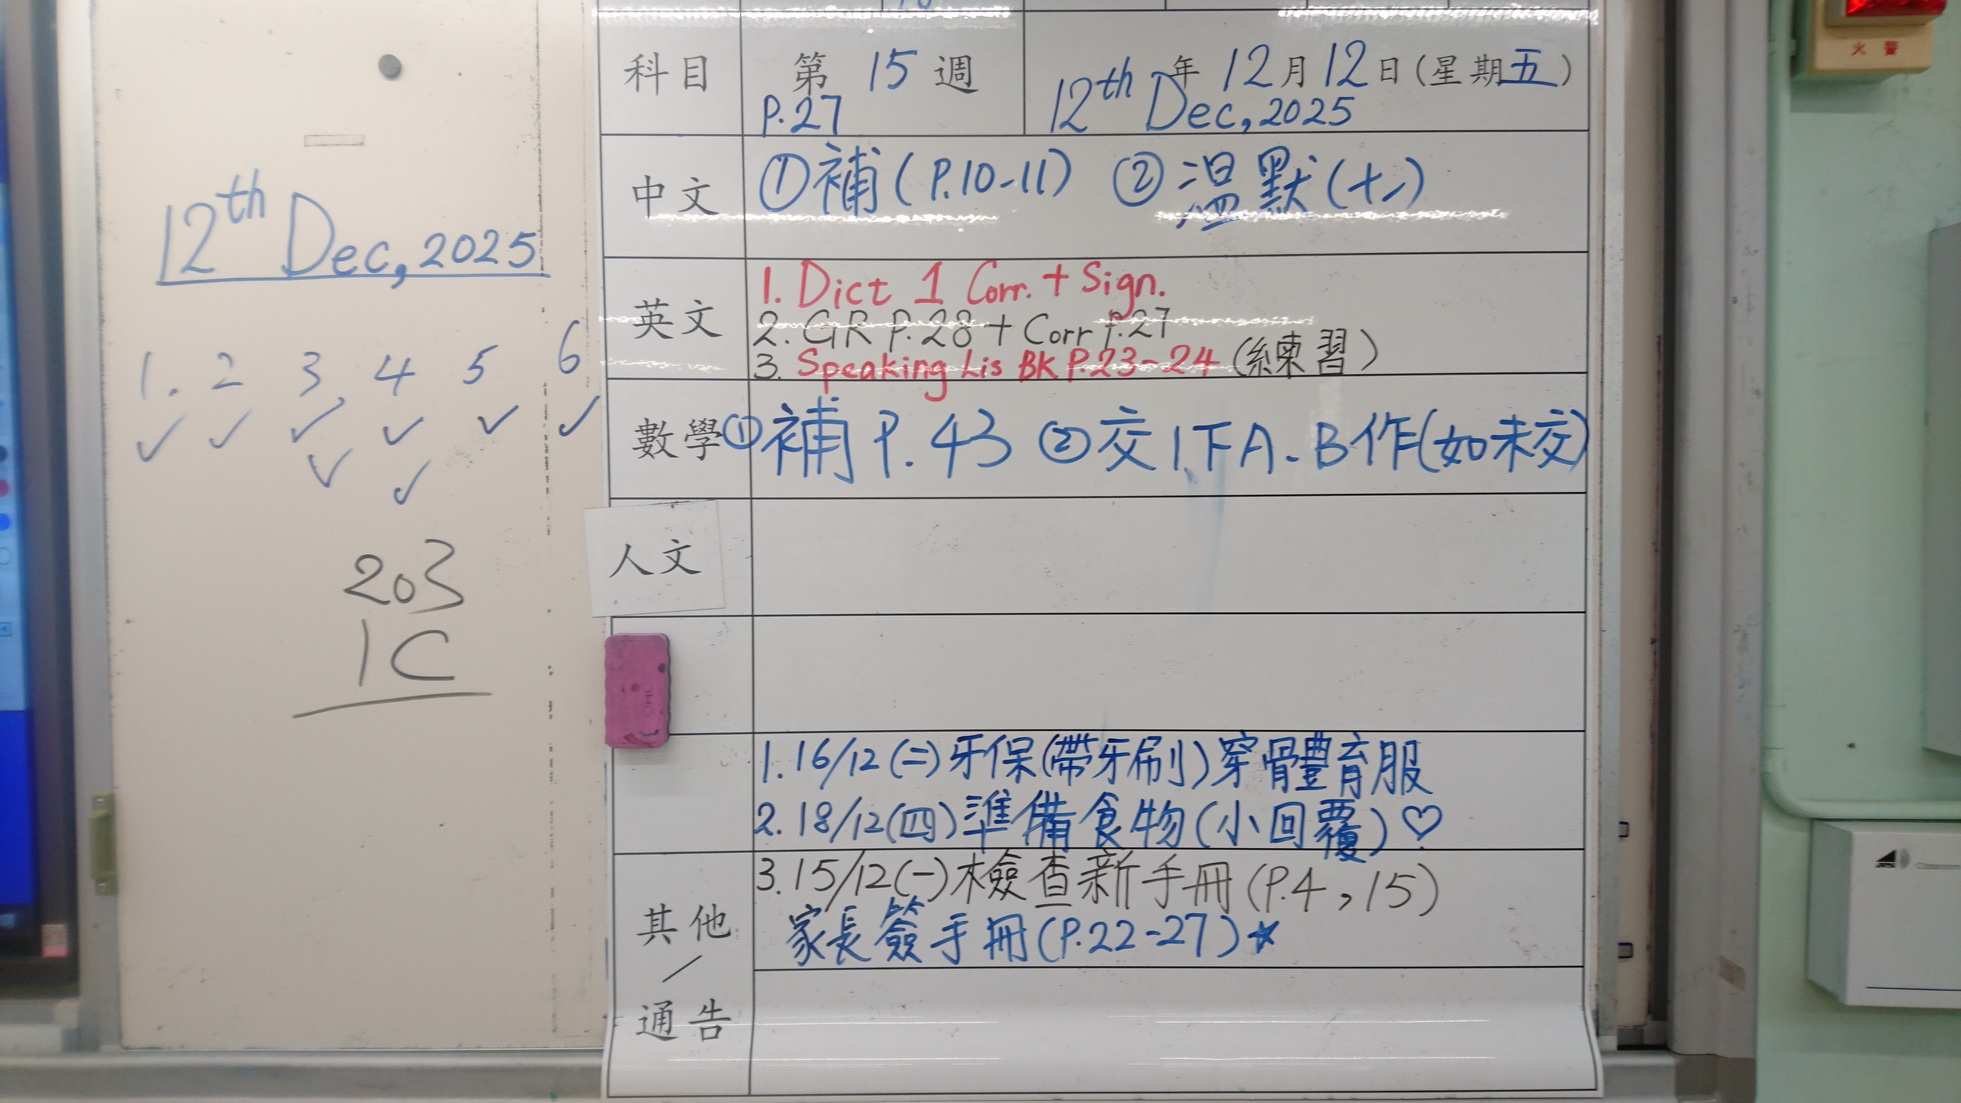 12th Dec, 2025
1. 2 3, 4 5 6
203
1C
科目 第 15 週 年 12 月 12 日 (星期五)
P.27 12th Dec, 2025
中文 ①補(P.10-11) ②溫默(十一)
英文
1. Dict 1 Corr. + Sign.
2. GR P.28 + Corr P.27
3. Speaking Lis BK P.23-24 (練習)
數學 ①補 P.43 ②交1下A.B作(如未交)
人文
1. 16/12(二)牙保(帶牙刷)穿體育服
2. 18/12(四)準備食物(小回覆)♡
3. 15/12(一)檢查新手冊(P.4,15)
家長簽手冊(P.22-27)★
其他
／
通告
火警